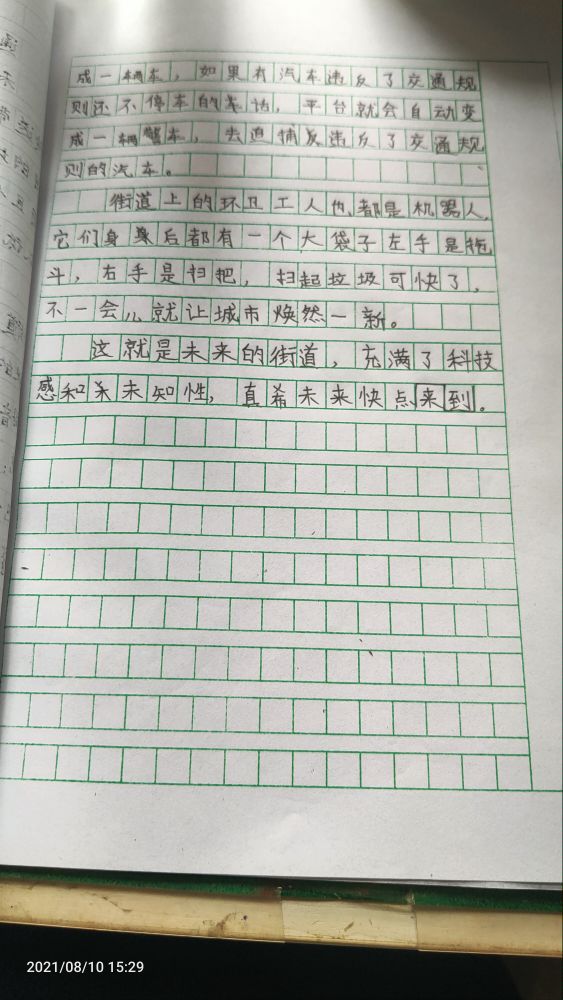 成一辆车，如果有汽车违反了交通规
则还不停车的话，平台就会自动变
成一辆警车，去追捕违反了交通规
则的汽车。
街道上的环卫工人也都是机器人，
它们身后都有一个大袋子左手是拖
斗，右手是扫把，扫起垃圾可快了，
不一会儿就让城市焕然一新。
这就是未来的街道，充满了科技
感和未知性，真希未来快点来到。
2021/08/10 15:29